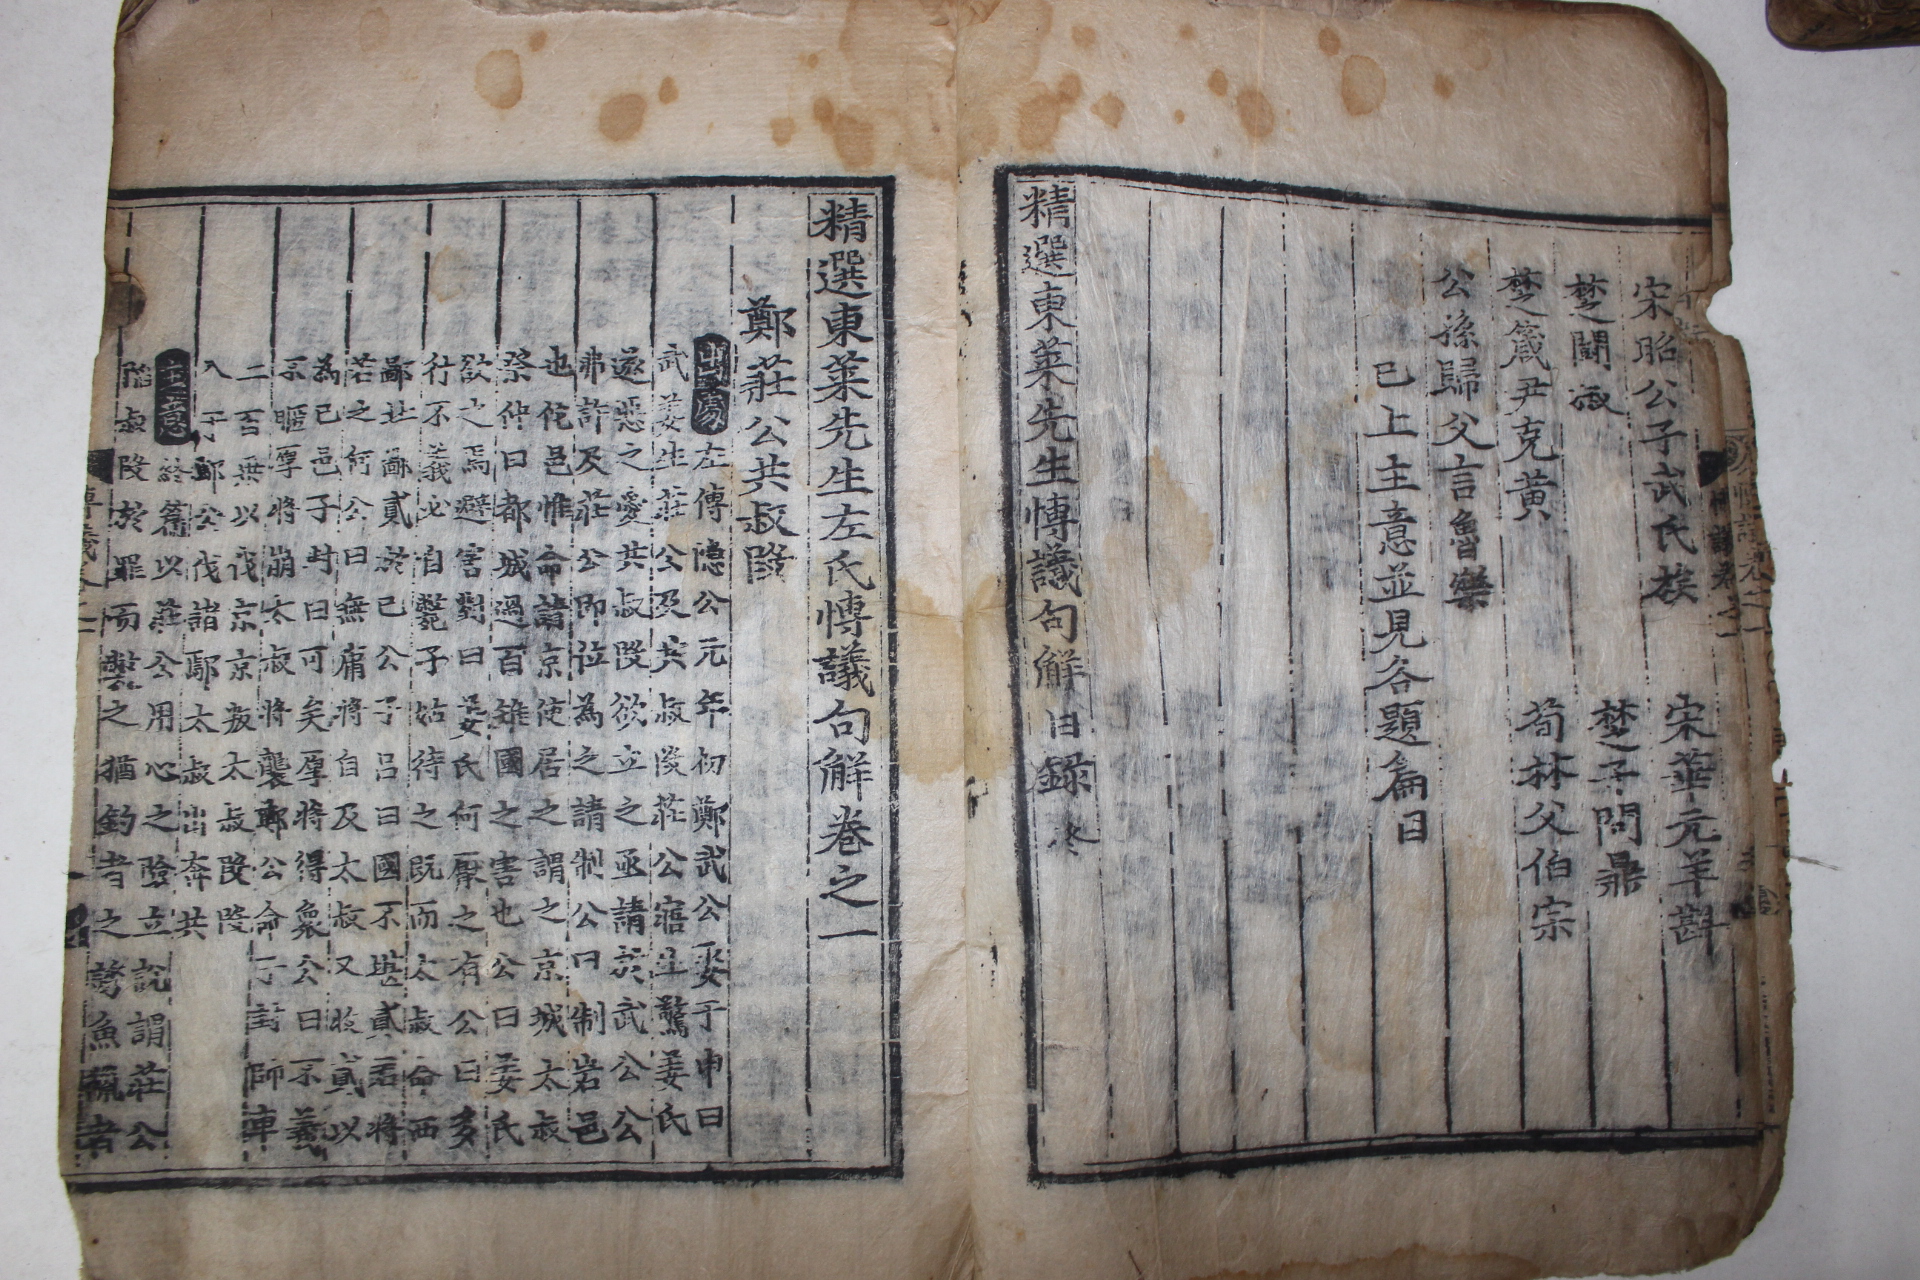 宋昭公子武氏族 宋華元羊斟
楚鬭椒 楚子問鼎
楚箴尹克黃 荀林父伯宗
公孫歸父言魯樂
已上主意並見各題篇目
精選東萊先生愽議句解目錄終
精選東萊先生左氏愽議句解卷之一
鄭莊公共叔段
出處左傳隱公元年初鄭武公娶于申曰
武姜生莊公及共叔段莊公寤生驚姜氏
遂惡之愛共叔段欲立之亟請於武公公
弗許及莊公即位為之請制公曰制岩邑
也佗邑惟命請京使居之謂之京城太叔
祭仲曰都城過百雉國之害也公曰姜氏
欲之焉避害對曰姜氏何厭之有公曰多
行不義必自斃子姑待之既而太叔命西
鄙北鄙貳於己公子呂曰國不堪貳君將
若之何公曰無庸將自及太叔又收貳以
為己邑子封曰可矣厚將得衆公曰不義
不暱厚將崩太叔將襲鄭公命子封帥車
二百乗以伐京京叛太叔段段
入于鄢公伐諸鄢太叔出奔共
主意終篇以莊公用心之險立說謂莊公
陷叔段於罪而之猶釣者之誘魚獵者